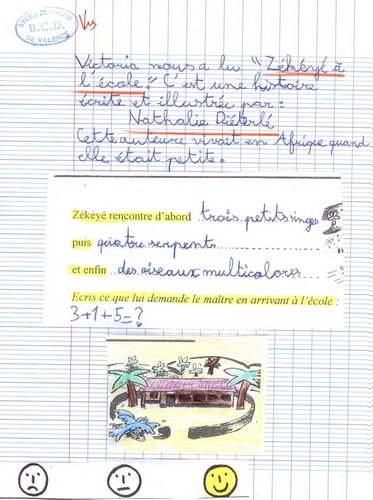 LYCÉE FRANÇAIS
B.C.D.
DE VALENCE
Vu
Victoria nous a lu "Zékéyé à
l'école". C'est une histoire
écrite et illustrée par :
Nathalie Diéterlé
Cette auteure vivait en Afrique quand
elle était petite.
Zékéyé rencontre d'abord trois petits singes
puis quatre serpents
et enfin des oiseaux multicolores
Ecris ce que lui demande le maître en arrivant à l'école :
3+1+5=?